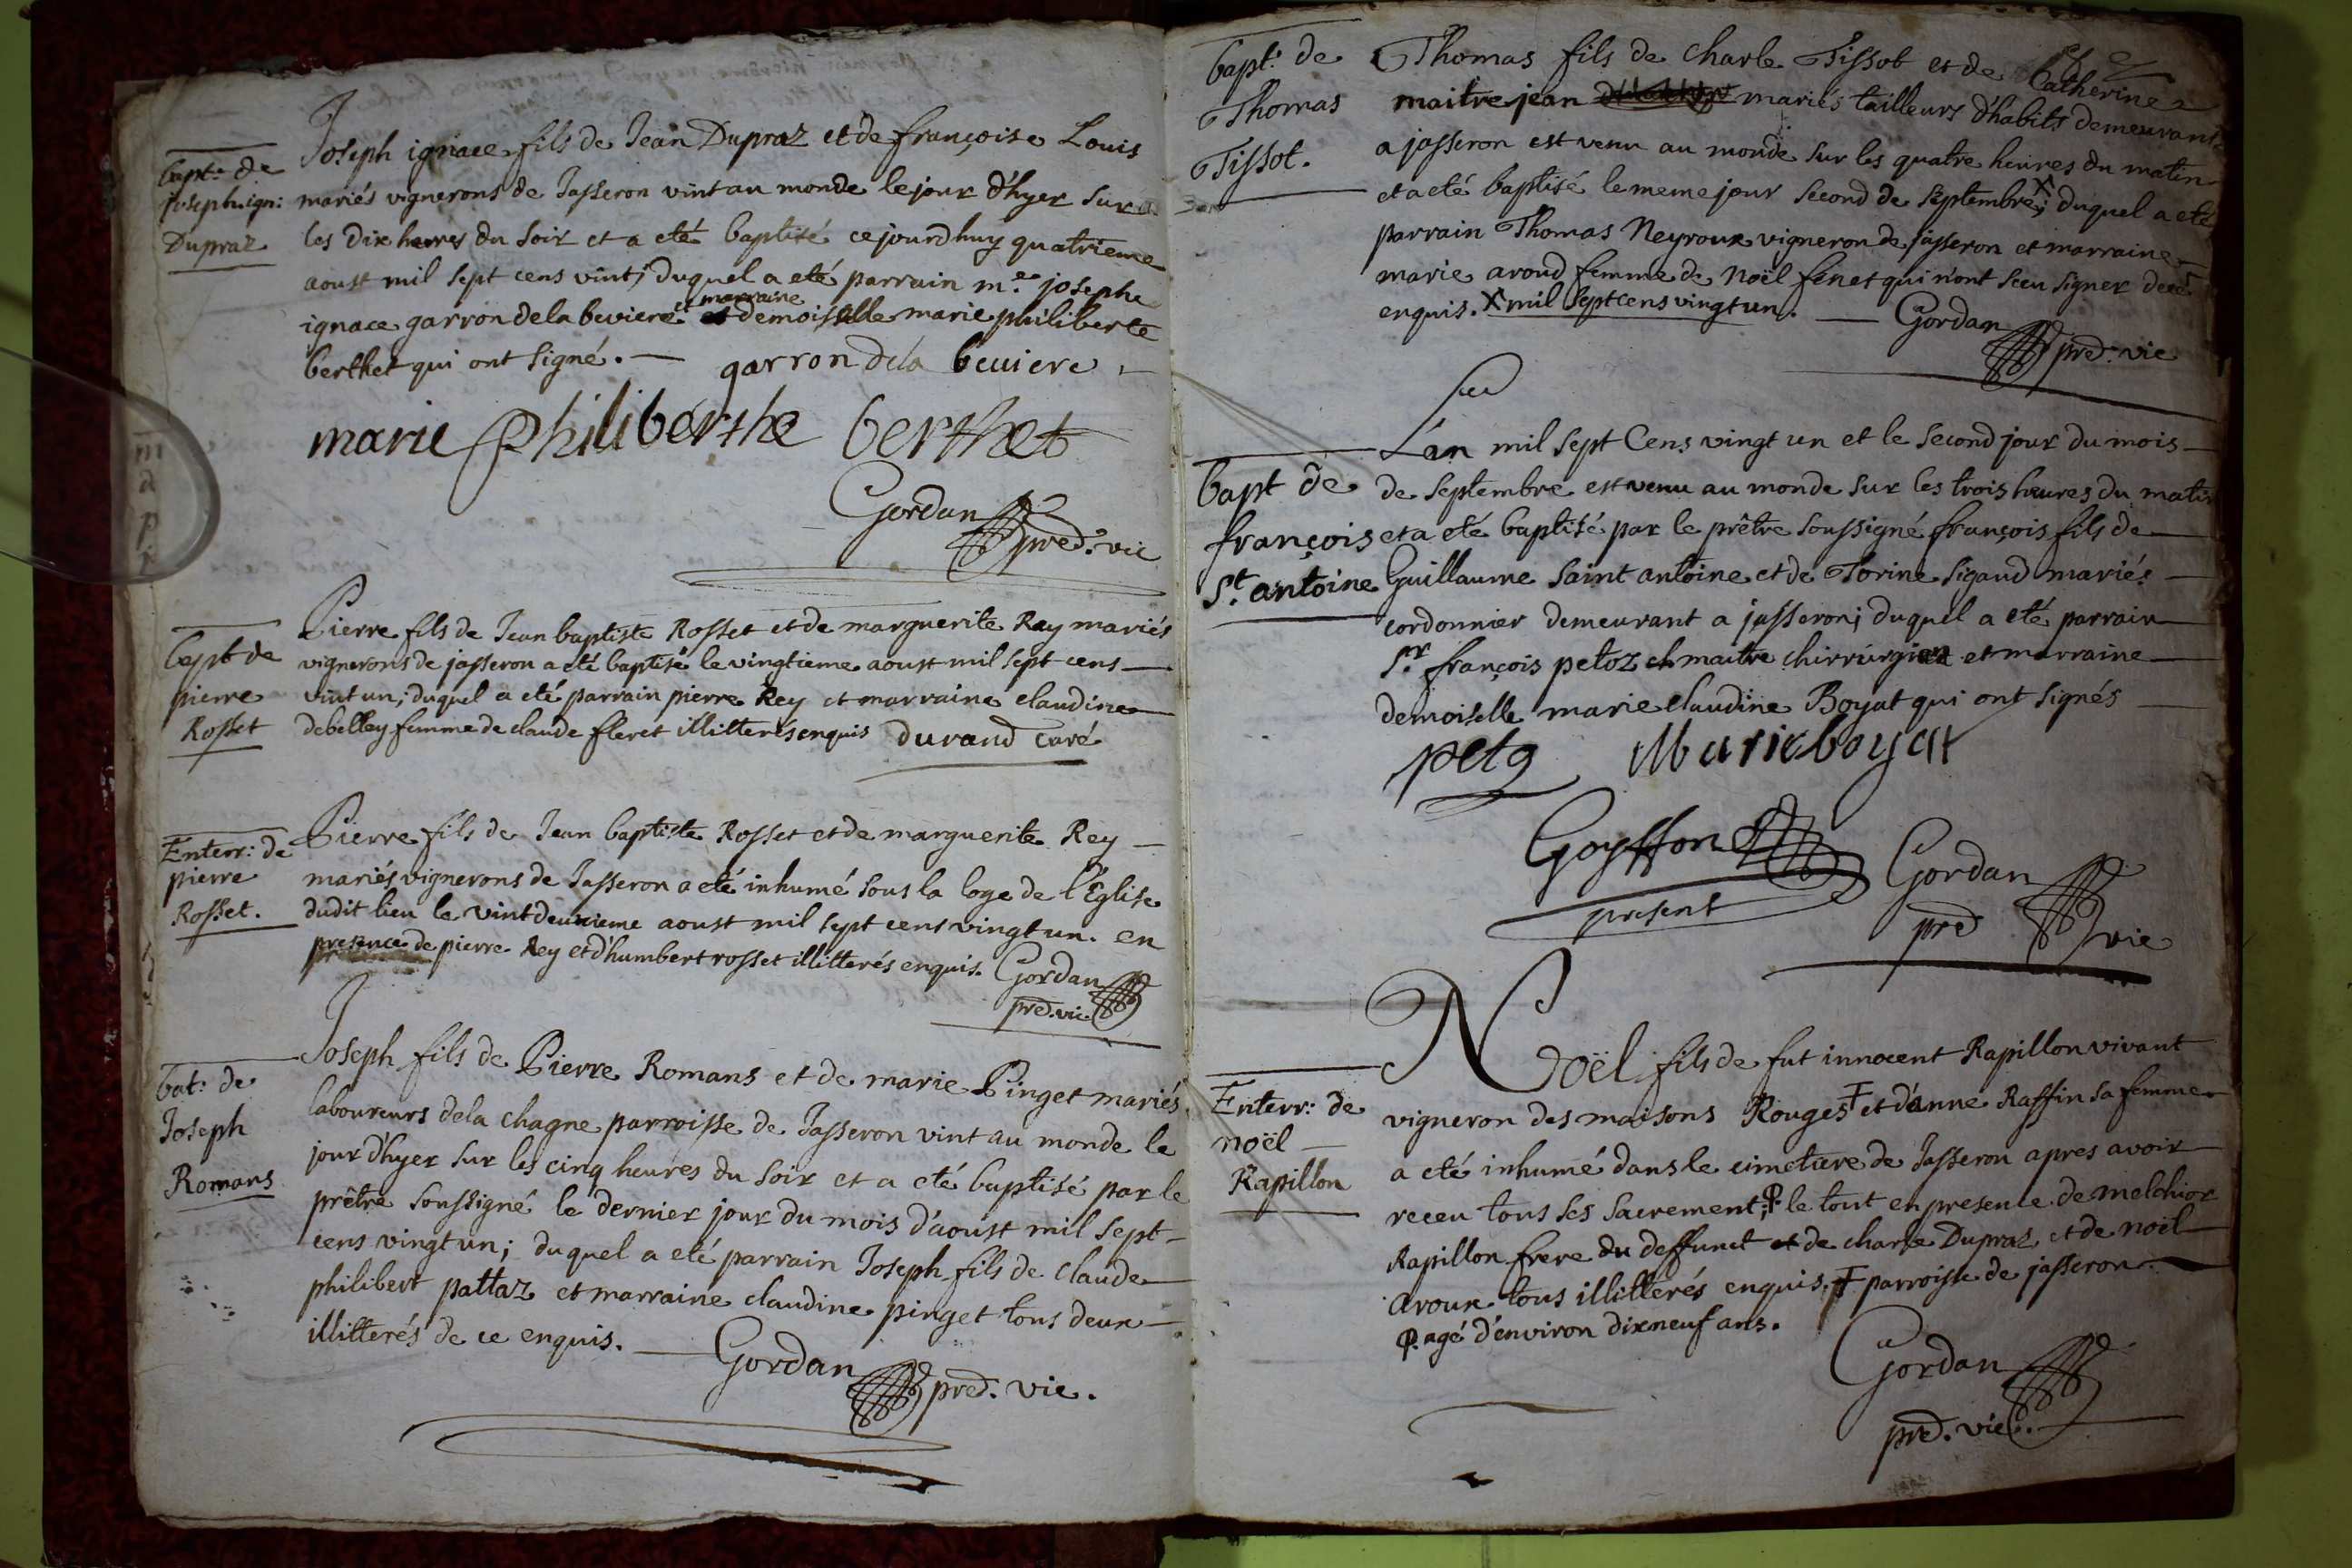 bapt: de
joseph ign:
Dupraz
Joseph ignace fils de Jean Dupraz et de françoise Louis
mariés vignerons de Jasseron vint au monde le jour d'hyer sur
les dix heures du soir et a eté baptisé ce jourdhuy quatrieme
aoust mil sept cens vint; duquel a eté parrain m.e josephe
ignace garron de la beviere et marraine demoiselle marie philiberte
berthet qui ont signé. garron dela beuiere
marie philiberthe berthet
Gordan
pred. vic
bapt de
pierre
Rosset
Pierre fils de Jean baptiste Rosset et de marguerite Rey mariés
vignerons de jasseron a eté baptisé le vingtieme aoust mil sept cens
vint un; duquel a eté parrain pierre Rey et marraine claudine
debelley femme de claude fleret illitterés enquis durand curé
Enterr: de
pierre
Rosset.
Pierre fils de Jean baptiste Rosset et de marguerite Rey
mariés vignerons de Jasseron a eté inhumé sous la loge de l'Église
dudit lieu le vint deuxieme aoust mil sept cens vingt un. en
presence de pierre Rey et d'humbert rosset illitterés enquis. Gordan
pred. vic.
bat: de
Joseph
Romans
Joseph fils de Pierre Romans et de marie Pinget mariés
laboureurs dela chagne parroisse de Jasseron vint au monde le
jour d'hyer sur les cinq heures du soir et a eté baptisé par le
prêtre soussigné le dernier jour du mois d'aoust mil sept
cens vingt un; duquel a eté parrain Joseph fils de claude
philibert pattaz et marraine claudine pinget tous deux
illitterés de ce enquis. Gordan pred. vic.
bapt: de
Thomas
Tissot.
Thomas fils de charle Tissot et de Catherine
maitre jean mariés tailleurs d'habits demeurans
a jasseron est venu au monde sur les quatre heures du matin
et a eté baptisé le meme jour second de septembre X; duquel a eté
parrain Thomas Neyroux vigneron de jasseron et marraine
marie aroud femme de Noël fenet qui n'ont sceu signer de ce
enquis. X mil sept cens vingt un. Gordan
pred. vic
bapt de
françois
S.t antoine
L'an mil sept Cens vingt un et le second jour du mois
de septembre est venu au monde sur les trois heures du matin
et a eté baptisé par le prêtre soussigné françois fils de
Guillaume saint antoine et de Torine sigaud mariés
cordonnier demeurant a jasseron; duquel a eté parrain
S.r françois petoz maitre chirrurgien et marraine
demoiselle marie claudine Boyat qui ont signés
peto Marie boyat
Goyffon
present
Gordan
pred vic
Enterr: de
noël
Rapillon
Noël fils de fut innocent Rapillon vivant
vigneron des maisons Rouges ‡ et d'anne Raffin sa femme
a eté inhumé dans le cimetiere de Jasseron apres avoir
receu tous ses sacrement; ₽ le tout en presence de melchior
Rapillon frere du deffunct et de charle Dupraz et de noël
aroux tous illitterés enquis. ‡ parroisse de jasseron
₽. agé d'environ dixneuf ans.
Gordan
pred. vic.